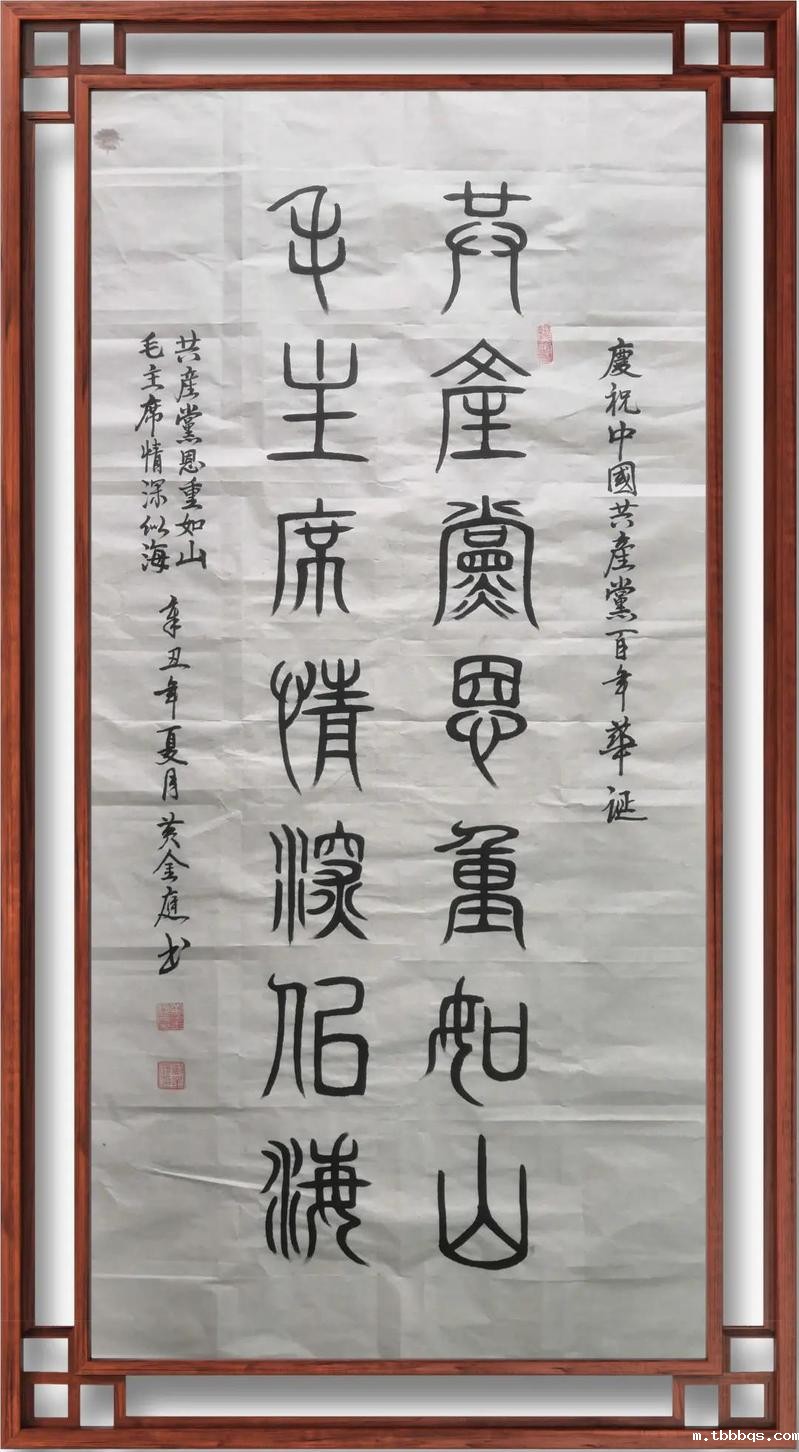 慶祝中國共產黨百年華誕
共產黨恩重如山
毛主席情深似海
共產黨恩重如山
毛主席情深似海
辛丑年夏月黄金應书
m.tbbbqs.com